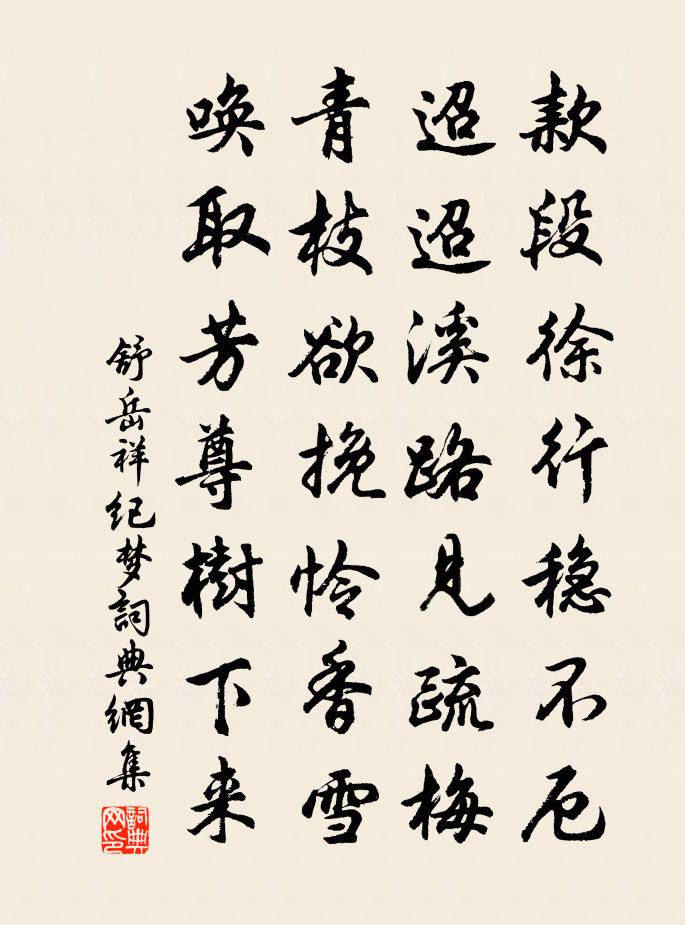 款段徐行稳不厄
迢迢溪路见疏梅
青枝欲挽怜香雪
唤取芳尊樹下来
舒岳祥纪梦詞典網集
詞典网印